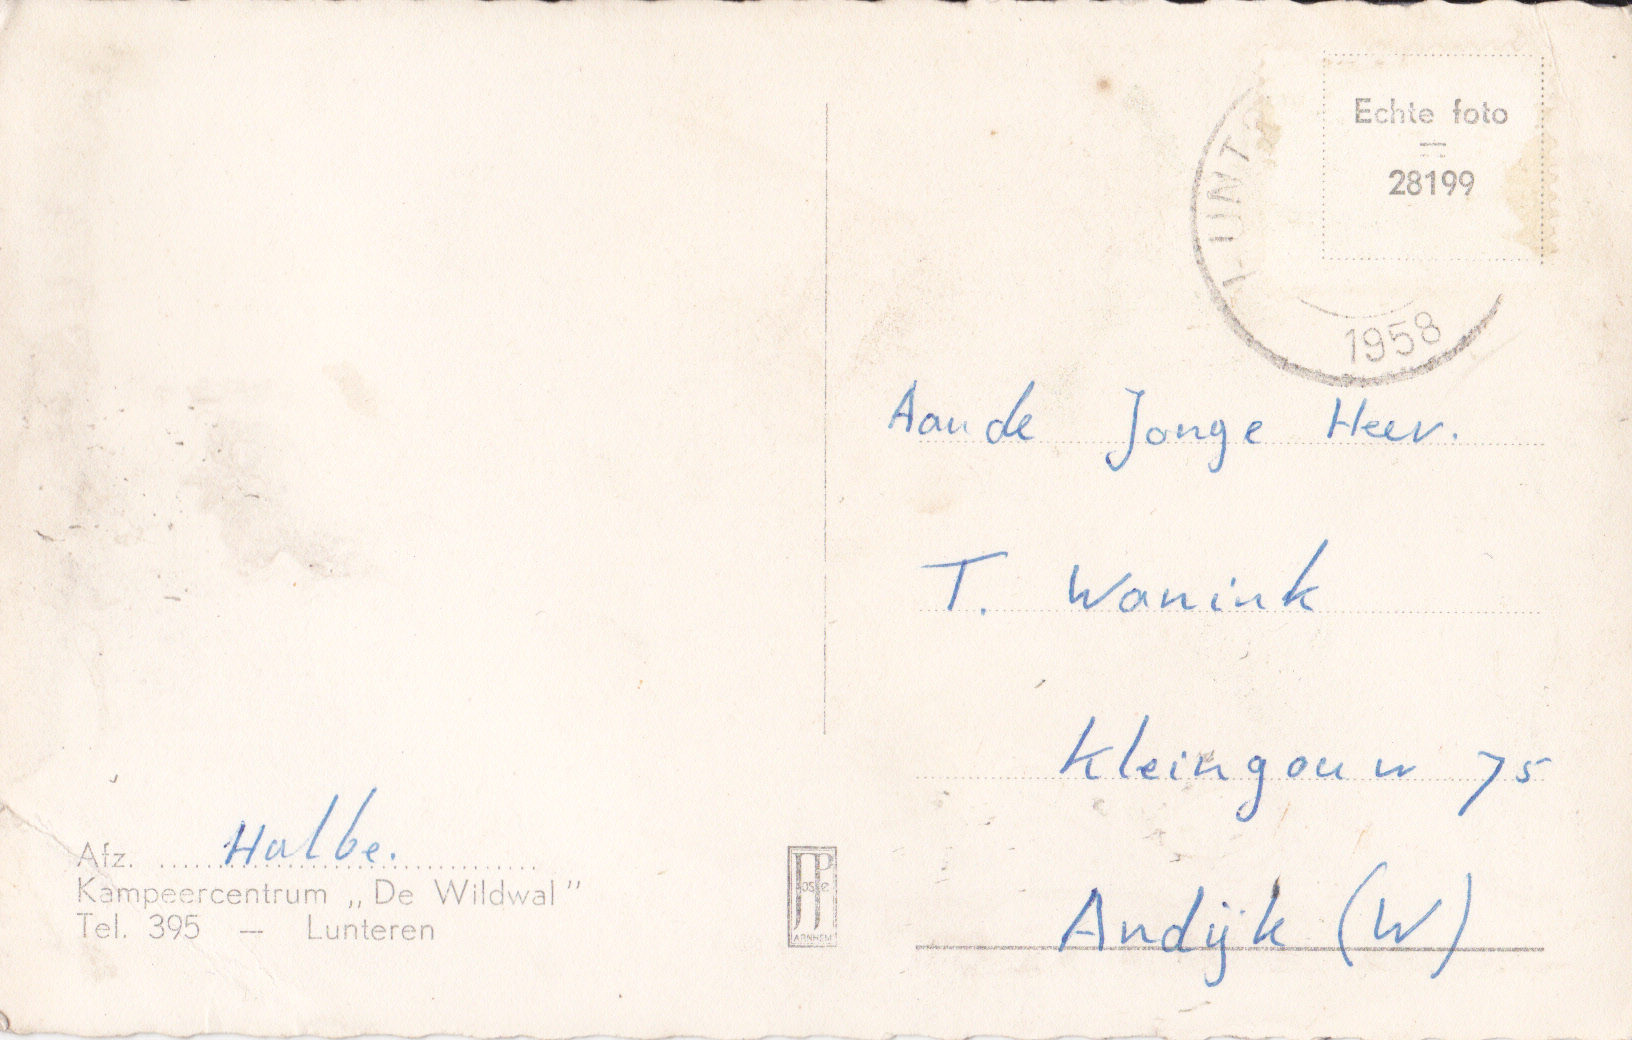 Echte foto
28199
LUNT
1958
Aan de Jonge Heer.
T. Wanink
Kleingouw 75
Andijk (W)
Afz. Halbe.
Kampeercentrum „De Wildwal”
Tel. 395 — Lunteren
JosPe
ARNHEM